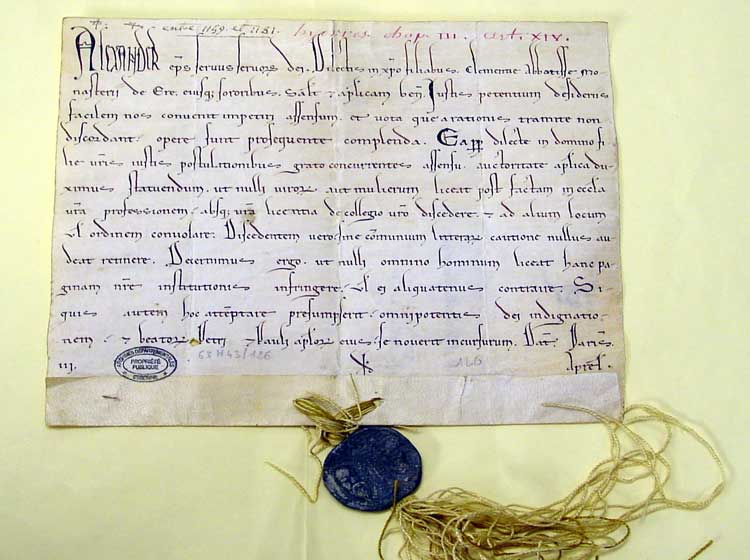 entre 1159 et 1181. hyerres chap III. art. XIV.
ALEXANDER ep̄s seruus seruoꝝ dei. Dilectis in xp̄o filiabus. Clementie Abbatisse mo
nasterii de Ere. eiusq; sororibus. Salt̄ ⁊ ap̄licam ben̄. Iustis petentium desideriis
facilem nos conuenit impertiri assensum. et uota que a rationis tramite non
discordant. opere sunt prosequente complenda. Eapp̄ dilecte in domino fi
lie ur̄is iustis postulationibus grato concurrentes assensu. auctoritate ap̄lica du
ximus statuendum. ut nulli uiroꝝ aut mulierum liceat post factam in eccl̄a
ur̄a professionem. absq; ur̄a licentia de collegio ur̄o discedere. ⁊ ad alium locum
ul̄ ordinem conuolare. Discedentem uero sine com̄unium litteraꝝ cautione nullus au
deat retinere. Decernimus ergo. ut nulli omnino hominum liceat hanc pa
ginam nr̄e institutionis infringere. ul̄ ei aliquatenus contraire. Si
quis autem hoc attēptare presumpserit. omnipotentis dei indignatio
nem. ⁊ beatoꝝ Petri ⁊ Pauli ap̄loꝝ eius. se nouerit incursurum. Dat̄. Parisi᷒.
iii. k̄l. Aprel̄.
ARCHIVES DEPARTEMENTALES
PROPRIÉTÉ PUBLIQUE
ESSONNE
63 H 43/126
126